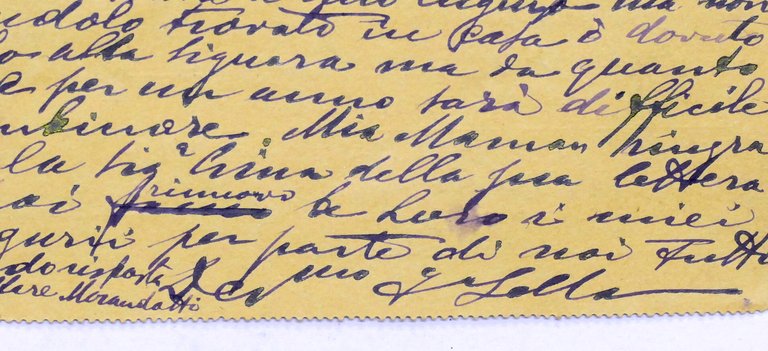 ma non
ndolo trovato in casa ò dovuto
alla signora ma da quanto
e per un anno sarà difficile
Mia Maman ringra
la Sig.a della sua lettera
oi rinnovo a Loro i miei
gurii per parte di noi tutti
do risposta Dev.mo Sella
Morandotti